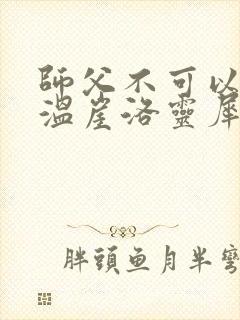 師父不可以
溫崖洛靈犀
胖頭魚月半彎